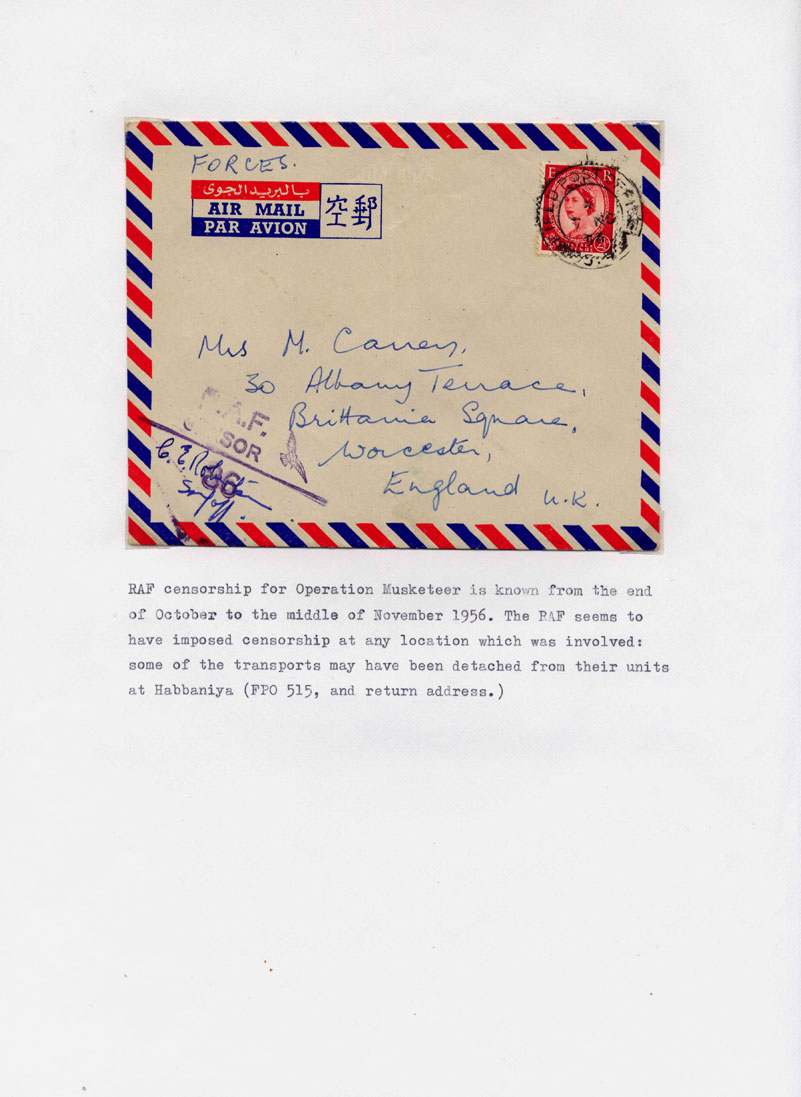 FORCES.
بالبريد الجوى
AIR MAIL
PAR AVION
空郵
E R
FIELD POST OFFICE
Mrs M.
30 Albany Terrace,
Brittania Square,
Worcester,
England U.K.
R.A.F.
CENSOR
86
C. E.
RAF censorship for Operation Musketeer is known from the end
of October to the middle of November 1956. The RAF seems to
have imposed censorship at any location which was involved:
some of the transports may have been detached from their units
at Habbaniya (FPO 515, and return address.)